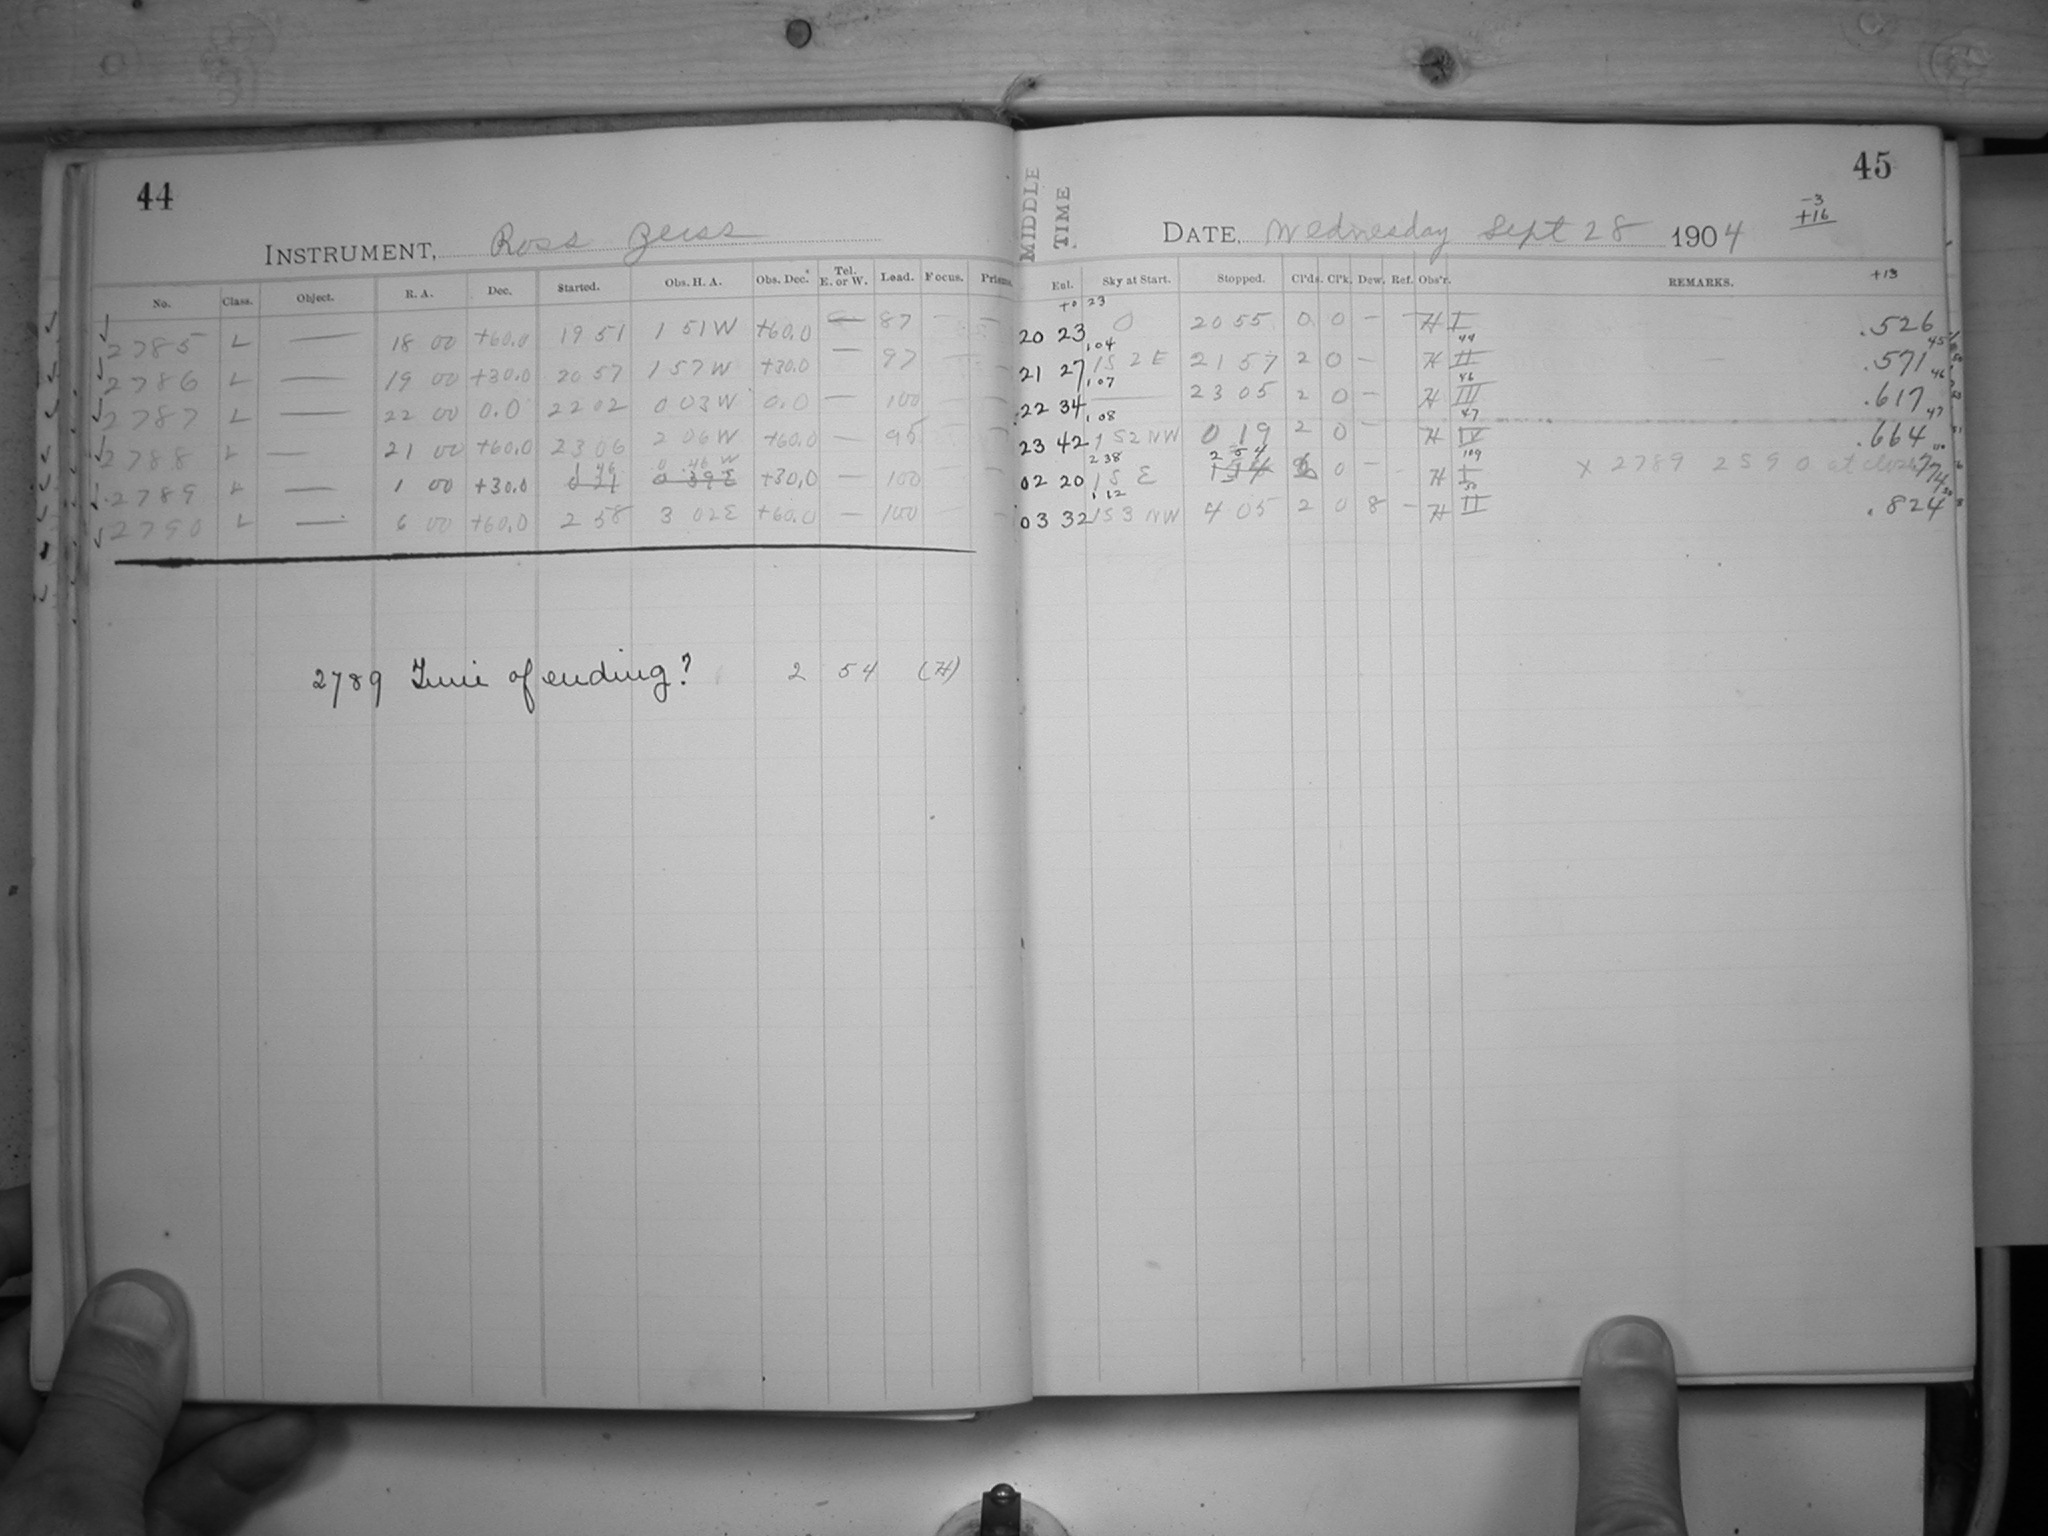 44
INSTRUMENT, Ross Zeiss
No. Class. Object. R. A. Dec. Started. Obs. H. A. Obs. Dec. Tel. E. or W. Load. Focus. Prisms.
2785 L — 18 00 +60.0 19 51 1 51 W +60.0 — 87 — —
2786 L — 19 00 +30.0 20 57 1 57 W +30.0 — 97 — —
2787 L — 22 00 0.0 22 02 0 03 W 0.0 — 100 — —
2788 L — 21 00 +60.0 23 06 2 06 W +60.0 — 95 — —
1 46 0 46 W
2789 L — 1 00 +30.0 0 21 0 39 E +30.0 — 100 — —
2790 L — 6 00 +60.0 2 58 3 02 E +60.0 — 100 — —
2789 Time of ending? 2 54 (H)
45
MIDDLE TIME
DATE, Wednesday Sept 28 1904
-3
+16
Eul. Sky at Start. Stopped. Cl'ds. Cl'k. Dew. Ref. Obs'r. REMARKS. +13
23
20 23 0 20 55 0 0 — — H I .526
1 04 44 45
21 27 1S 2 E 21 57 2 0 — H II .571
1 07 46 46
22 34 — 23 05 2 0 — H III .617
1 08 47 47
23 42 1 S2 NW 0 19 2 0 — H IV .664
2 38 2 54 109 110
02 20 1S E 1 54 0 — H I × 2789 2590 at close .774
1 12 50 50
03 32 1S3 NW 4 05 2 0 8 — H II .824